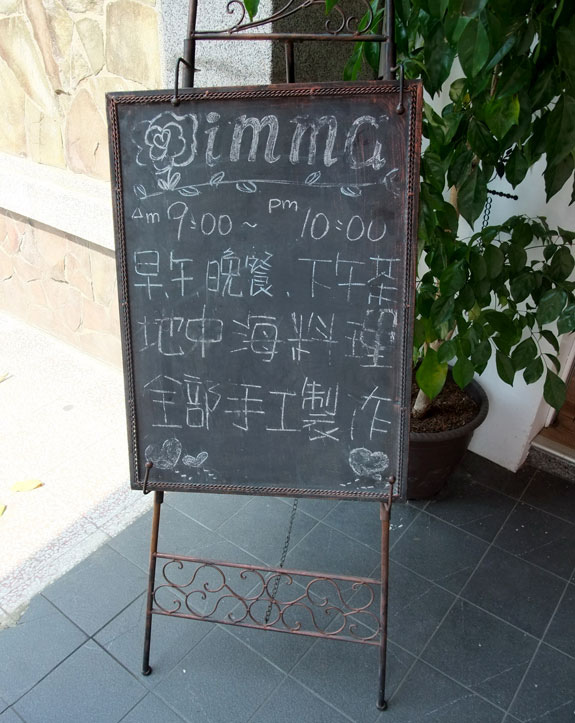 imma
Am 9:00 ~ pm 10:00
早午晚餐、下午茶
地中海料理
全部手工製作